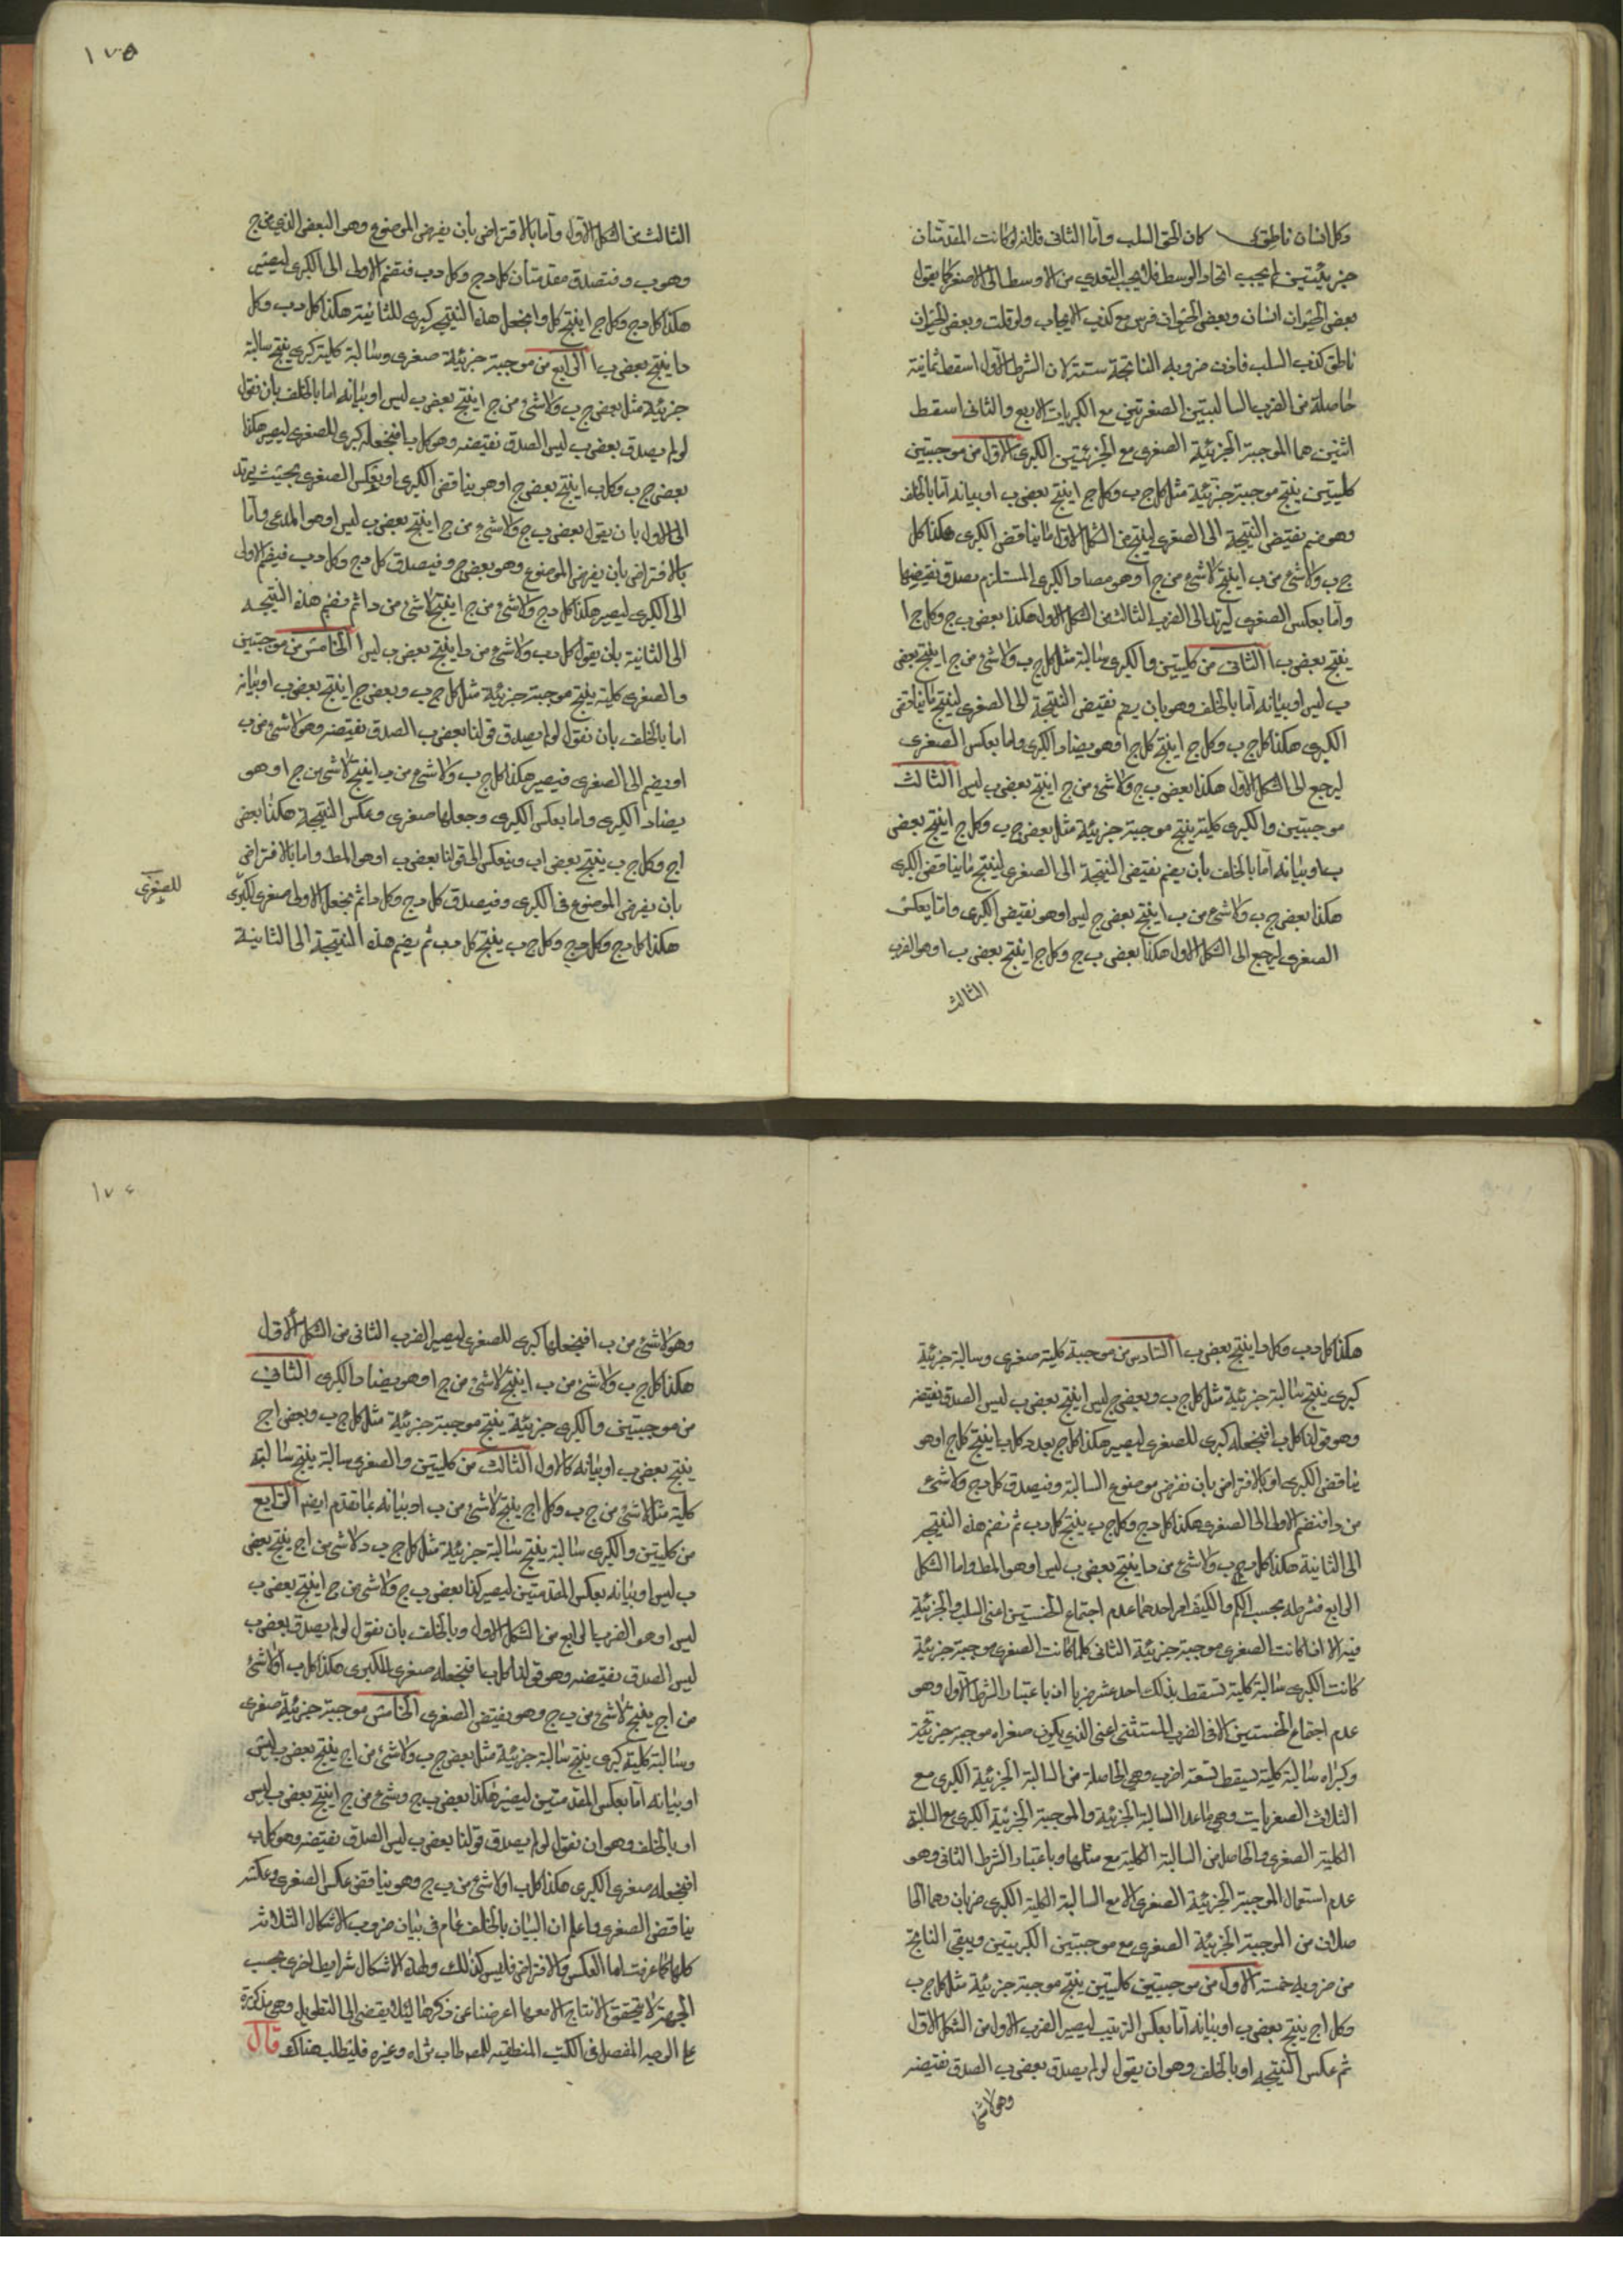 وكل انسان ناطق كان الحق السلب وأما الثانى فلانه لو كانت المقدمتان
جزئيتين لم يجب اتحاد الوسط فلا يجب التعدي من الاوسط الى الاصغر كما يقول
بعض الحيوان انسان وبعض الحيوان فرس مع كذب الايجاب ولو قلت وبعض الحيوان
ناطق كذب السلب فاذن ضروبه الناتجة ستة لان الشرط الاول اسقط ثمانية
حاصلة من الضرب السالبتين الصغرتين مع الكبريات الاربع والثانى اسقط
اثنين هما الموجبة الجزئية الصغرى مع الجزئيتين الكبرى الاول من موجبتين
كليتين ينتج موجبة جزئية مثل كل ج ب وكل ج ا ينتج بعض ب ا وبيانه أما بالخلف
وهو ضم نقيض النتيجة الى الصغرى لينتج من الشكل الاول ما يناقض الكبرى هكذا كل
ج ب ولا شئ من ب ا ينتج لا شئ من ج ا وهو مضاد الكبرى المستلزم بصدق نقيضها
وأما بعكس الصغرى ليرتد الى الضرب الثالث من الشكل الاول هكذا بعض ب ج وكل ج ا
ينتج بعض ب ا الثانى من كليتين والكبرى سالبة مثل كل ج ب ولا شئ من ج ا ينتج بعض
ب ليس ا وبيانه أما بالخلف وهو بان يضم نقيض النتيجة الى الصغرى لينتج ما يناقض
الكبرى هكذا كل ج ب وكل ب ا ينتج كل ج ا وهو يضاد الكبرى وأما بعكس الصغرى
ليرجع الى الشكل الاول هكذا بعض ب ج ولا شئ من ج ا ينتج بعض ب ليس ا الثالث
موجبتين والكبرى كلية ينتج موجبة جزئية مثل بعض ج ب وكل ج ا ينتج بعض
ب ا وبيانه أما بالخلف بأن يضم نقيض النتيجة الى الصغرى لينتج ما يناقض الكبرى
هكذا بعض ج ب ولا شئ من ب ا ينتج بعض ج ليس ا وهو نقيض الكبرى وأما بعكس
الصغرى ليرجع الى الشكل الاول هكذا بعض ب ج وكل ج ا ينتج بعض ب ا وهو الضرب
الثالث
١٧٥
الثالث من الشكل الاول وأما بالافتراض بأن يفرض الموضوع وهو البعض الذي من ج
وهو ب د فتصدق مقدمتان كل د ج وكل د ب فتضم الاولى الى الكبرى ليصير
هكذا كل د ج وكل ج ا ينتج كل د ا نجعل هذه النتيجة كبرى للثانية هكذا كل د ب وكل
د ا ينتج بعض ب ا الرابع من موجبة جزئية صغرى وسالبة كلية كبرى ينتج سالبة
جزئية مثل بعض ج ب ولا شئ من ج ا ينتج بعض ب ليس ا وبيانه اما بالخلف بان نقول
لو لم يصدق بعض ب ليس ا لصدق نقيضه وهو كل ب ا فنجعله كبرى للصغرى ليصير هكذا
بعض ج ب وكل ب ا ينتج بعض ج ا وهو يناقض الكبرى او بعكس الصغرى بحيث يرتد
الى الاول بان يقول بعض ب ج ولا شئ من ج ا ينتج بعض ب ليس ا وهو المدعى وأما
بالافتراض بأن يفرض الموضوع وهو بعض ج د فيصدق كل د ج وكل د ب فيضم الاولى
الى الكبرى ليصير هكذا كل د ج ولا شئ من ج ا ينتج لا شئ من د ا ثم نضم هذه النتيجة
الى الثانية بأن يقول كل د ب ولا شئ من د ا ينتج بعض ب ليس ا الخامس من موجبتين
والصغرى كلية ينتج موجبة جزئية مثل كل ج ب وبعض ج ا ينتج بعض ب ا وبيانه
اما بالخلف بان نقول لو لم يصدق قولنا بعض ب ا لصدق نقيضه وهو لا شئ من ب
ا ويضم الى الصغرى فيصير هكذا كل ج ب ولا شئ من ب ا ينتج لا شئ من ج ا وهو
يضاد الكبرى واما بعكس الكبرى وجعلها صغرى وعكس النتيجة هكذا بعض
ا ج وكل ج ب ينتج بعض ا ب وينعكس الى قولنا بعض ب ا وهو المط واما بالافتراض
بان يفرض الموضوع فى الكبرى د فيصدق كل د ج وكل د ا ثم نجعل الاولى صغرى لكبرى
للصغرى
هكذا كل د ج وكل ج ب ينتج كل د ب ثم يضم هذه النتيجة الى الثانية
هكذا كل د ب وكل د ا ينتج بعض ب ا السادس من موجبة كلية صغرى وسالبة جزئية
كبرى ينتج سالبة جزئية مثل كل ج ب وبعض ج ليس ا ينتج بعض ب ليس ا لصدق نقيضه
وهو قولنا كل ب ا فنجعله كبرى للصغرى ليصير هكذا كل ج ب وكل ب ا ينتج كل ج ا وهو
يناقض الكبرى او بالافتراض بان نفرض موضوع السالبة د فيصدق كل د ج ولا شئ
من د ا فنضم الاولى الى الصغرى هكذا كل د ج وكل ج ب ينتج كل د ب ثم نضم هذه النتيجة
الى الثانية هكذا كل د ب ولا شئ من د ا ينتج بعض ب ليس ا وهو المط واما الشكل
الرابع فشرطه بحسب الكم والكيف امر احدهما عدم اجتماع الخستين اعنى السلب والجزئية
فيه الا اذا كانت الصغرى موجبة جزئية الثانى كلما كانت الصغرى موجبة جزئية
كانت الكبرى سالبة كلية فسقط بذلك احد عشر ضربا اذ باعتبار الشرط الاول وهو
عدم اجتماع الخستين الا فى الضرب المستثنى اعنى الذي يكون صغراه موجبة جزئية
وكبراه سالبة كلية يسقط تسعة اضرب وهي الحاصلة من السالبة الجزئية الكبرى مع
الثلاث الصغريات وهي ما عدا السالبة الجزئية والموجبة الجزئية الكبرى مع السالبة
الكلية الصغرى والحاصل من السالبة الكلية مع مثلها وباعتبار الشرط الثانى وهو
عدم استعمال الموجبة الجزئية الصغرى الا مع السالبة الكلية الكبرى ضربان وهما الحا
صلان من الموجبة الجزئية الصغرى مع موجبتين الكبريتين ويبقى الناتج
من ضروبه خمسة الاول من موجبتين كليتين ينتج موجبة جزئية مثل كل ج ب
وكل ا ج ينتج بعض ب ا وبيانه أما بعكس الترتيب ليصير الضرب الاول من الشكل الاول
ثم عكس النتيجة او بالخلف وهو ان يقول لو لم يصدق بعض ب ا لصدق نقيضه
وهو لا شئ
١٧٤
وهو لا شئ من ب ا فنجعلها كبرى للصغرى ليصير الضرب الثانى من الشكل الاول
هكذا كل ج ب ولا شئ من ب ا ينتج لا شئ من ج ا وهو يضاد الكبرى الثاني
من موجبتين والكبرى جزئية ينتج موجبة جزئية مثل كل ج ب وبعض ا ج
ينتج بعض ب ا وبيانه كالاول الثالث من كليتين والصغرى سالبة ينتج سالبة
كلية مثل لا شئ من ج ب وكل ا ج ينتج لا شئ من ب ا وبيانه بما تقدم ايضا الرابع
من كليتين والكبرى سالبة ينتج سالبة جزئية مثل كل ج ب ولا شئ من ا ج ينتج بعض
ب ليس ا وبيانه بعكس المقدمتين ليصير كذا بعض ب ج ولا شئ من ج ا ينتج بعض ب
ليس ا وهو الضرب الرابع من الشكل الاول وبالخلف بان نقول لو لم يصدق بعض ب
ليس ا لصدق نقيضه وهو قولنا كل ب ا فنجعله صغرى للكبرى هكذا كل ب ا ولا شئ
من ا ج ينتج لا شئ من ب ج وهو نقيض الصغرى الخامس موجبة جزئية صغرى
وسالبة كلية كبرى ينتج سالبة جزئية مثل بعض ج ب ولا شئ من ا ج ينتج بعض ب ليس
ا وبيانه أما بعكس المقدمتين ليصير هكذا بعض ب ج وشئ من ج ا ينتج بعض ب ليس
ا وبالخلف وهو ان نقول لو لم يصدق قولنا بعض ب ليس ا لصدق نقيضه وهو كل ب
ا فنجعله صغرى الكبرى هكذا كل ب ا ولا شئ من ب ج وهو يناقض عكس الصغرى وعكسه
يناقض الصغرى واعلم ان البيان بالخلف عام فى بيان ضروب الاشكال الثلاثة
كلها كما عرفت اما العكس والافتراض فليس كذلك ولهذه الاشكال شرايط اخرى بحسب
الجهة لا يتحقق الانتاج الا معها اعرضنا عن ذكرها لئلا يفضى الى التطويل وهي مذكورة
على الوجه المفصل فى الكتب المنطقية للمصنف طاب ثراه وغيره فليطلب هناك قال